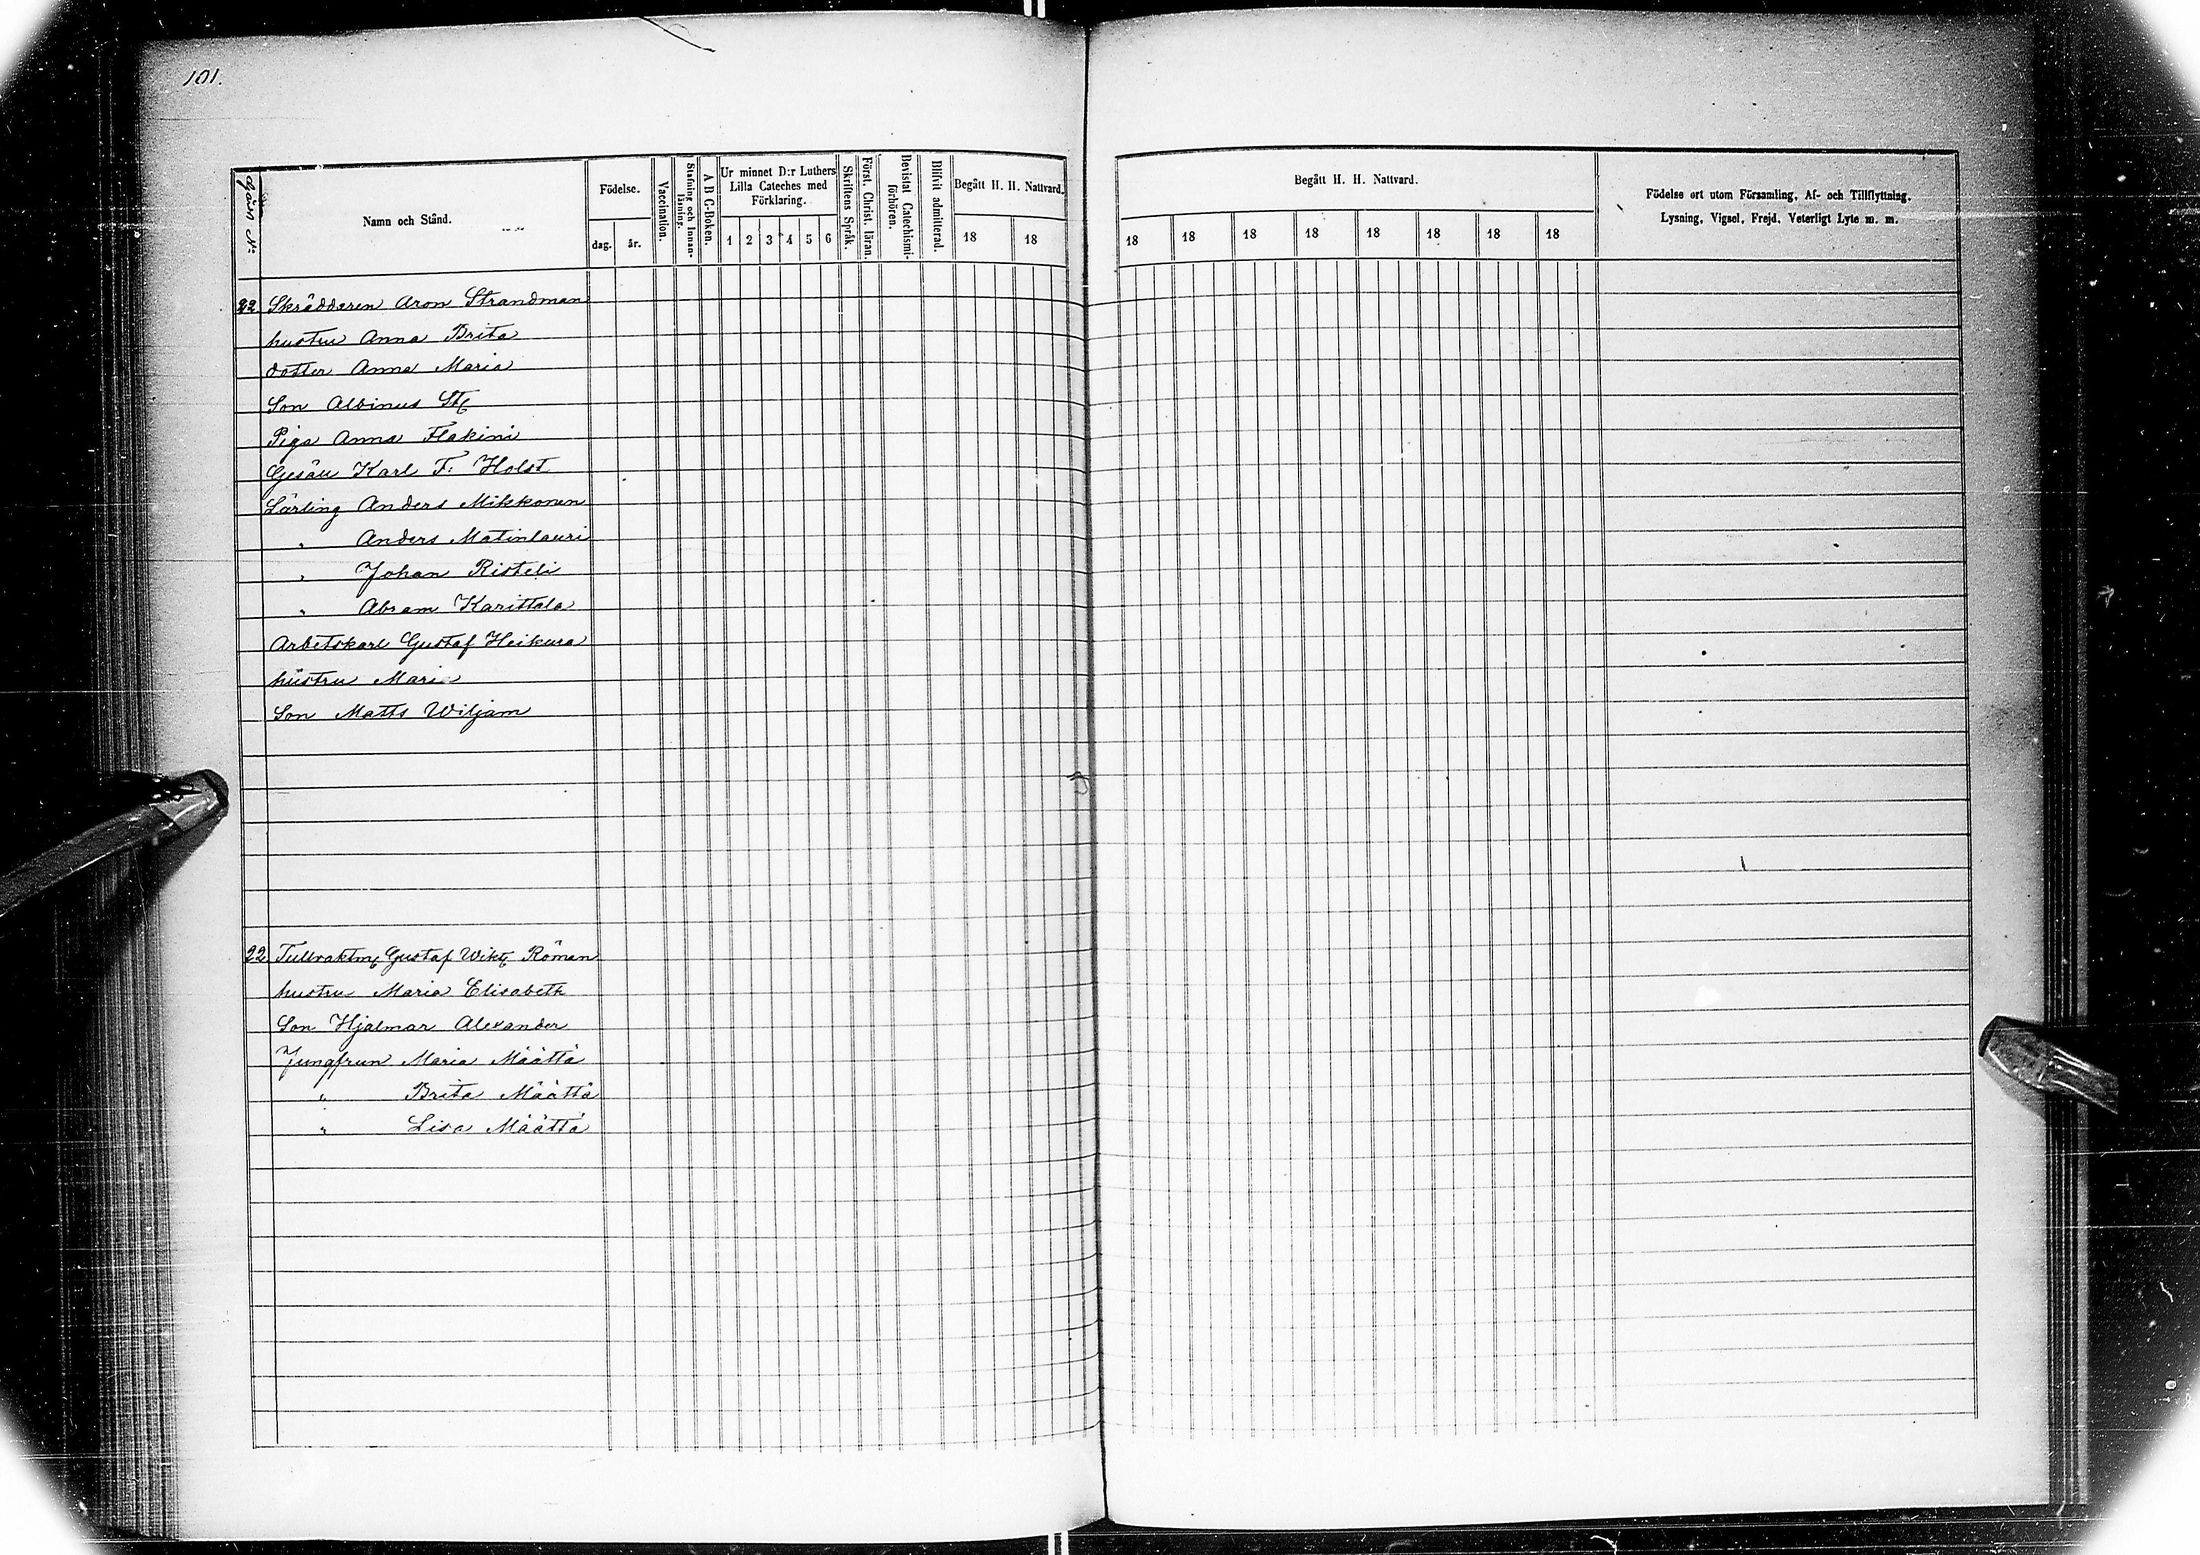 101.
Gårds N:o
Namn och Stånd.
Födelse.
dag. år.
Vaccination.
Stafning och Innanläsning.
A B C-Boken.
Ur minnet D:r Luthers Lilla Cateches med Förklaring.
1 2 3 4 5 6
Skriftens Språk.
Först. Christ. läran.
Bevistat Catechismiförhören.
Blifvit admitterad.
Begått H. H. Nattvard.
18 18
Begått H. H. Nattvard.
18 18 18 18 18 18 18 18
Födelse ort utom Församling, Af- och Tillflyttning,
Lysning, Vigsel, Frejd, Veterligt Lyte m. m.
22 Skrädderen Aron Strandman
hustru Anna Brita
dotter Anna Maria
Son Albinus
Piga Anna Flakini
Gesäll Karl F. Holst
Lärling Anders Mikkonen
" Anders Matinlauri
" Johan Risteli
" Abram Karittala
Arbetskarl Gustaf Heikura
hustru Maria
Son Matts Wiljam
22 Tullvaktm Gustaf Wikt Röman
hustru Maria Elisabeth
Son Hjalmar Alexander
Jungfrun Maria Määttä
" Brita Määttä
" Lisa Määttä